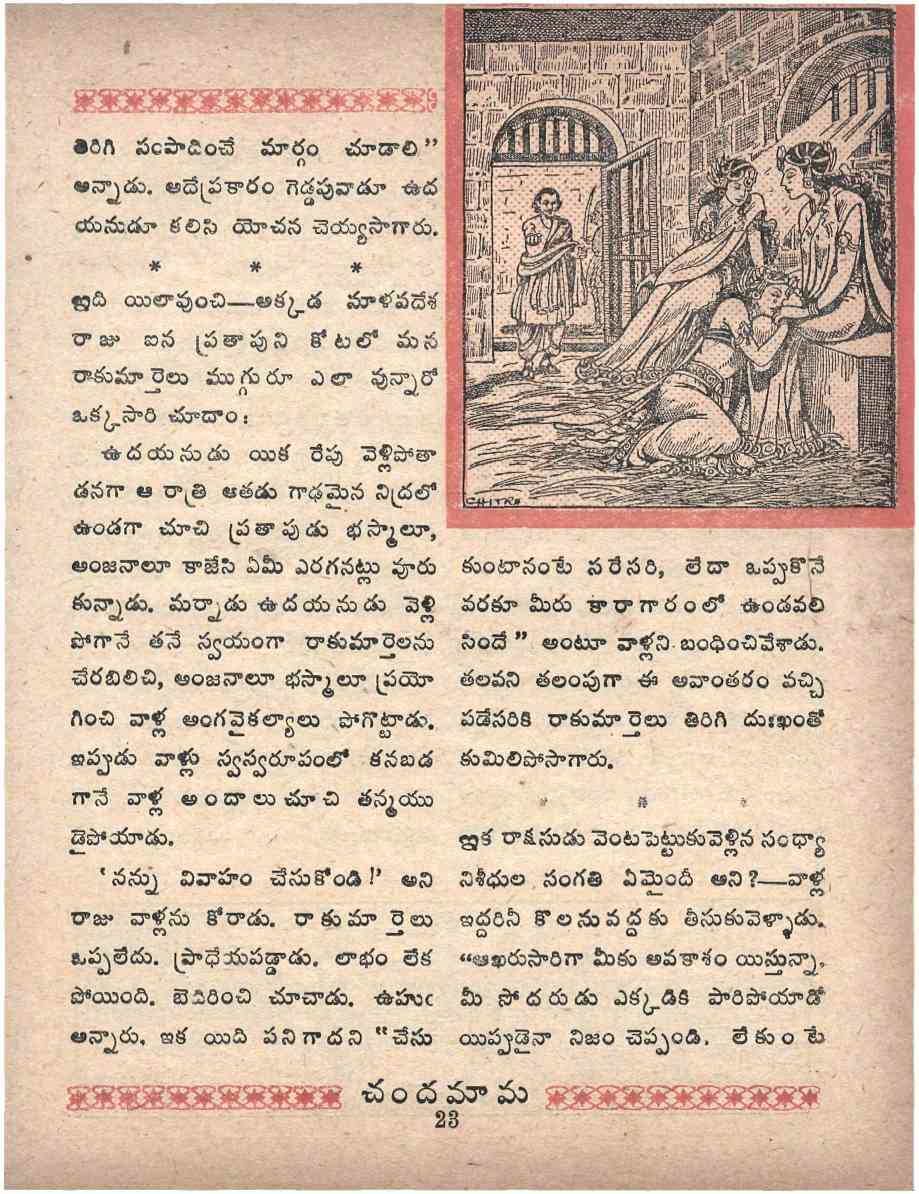 తిరిగి సంపాదించే మార్గం చూడాలి”
అన్నాడు. అదేప్రకారం గెడ్డపువాడూ ఉద
యనుడూ కలిసి యోచన చెయ్యసాగారు.
* * *
ఇది యిలావుంచి—అక్కడ మాళవదేశ
రాజు ఐన ప్రతాపుని కోటలో మన
రాకుమార్తెలు ముగ్గురూ ఎలా వున్నారో
ఒక్కసారి చూదాం:
ఉదయనుడు యిక రేపు వెళ్లిపోతా
డనగా ఆ రాత్రి ఆతడు గాఢమైన నిద్రలో
ఉండగా చూచి ప్రతాపుడు భస్మాలూ,
అంజనాలూ కాజేసి ఏమీ ఎరగనట్లు వూరు
కున్నాడు. మర్నాడు ఉదయనుడు వెళ్లి
పోగానే తనే స్వయంగా రాకుమార్తెలను
చేరబిలిచి, అంజనాలూ భస్మాలూ ప్రయో
గించి వాళ్ల అంగవైకల్యాలు పోగొట్టాడు.
ఇప్పుడు వాళ్లు స్వస్వరూపంలో కనబడ
గానే వాళ్ల అందాలుచూచి తన్మయు
డైపోయాడు.
‘నన్ను వివాహం చేసుకోండి!’ అని
రాజు వాళ్లను కోరాడు. రాకుమార్తెలు
ఒప్పలేదు. ప్రాధేయపడ్డాడు. లాభం లేక
పోయింది. బెదిరించి చూచాడు. ఉహుఁ
అన్నారు. ఇక యిది పనిగాదని “చేసు
CHITRA
కుంటానంటే సరేసరి, లేదా ఒప్పుకొనే
వరకూ మీరు కారాగారంలో ఉండవలి
సిందే” అంటూ వాళ్లని బంధించివేశాడు.
తలవని తలంపుగా ఈ అవాంతరం వచ్చి
పడేసరికి రాకుమార్తెలు తిరిగి దుఃఖంతో
కుమిలిపోసాగారు.
* * *
ఇక రాక్షసుడు వెంటపెట్టుకువెళ్లిన సంధ్యా
నిశీధుల సంగతి ఏమైందీ అని?—వాళ్ల
ఇద్దరినీ కొలనువద్దకు తీసుకువెళ్ళాడు.
“ఆఖరుసారిగా మీకు అవకాశం యిస్తున్నా.
మీ సోదరుడు ఎక్కడికి పారిపోయాడో
యిప్పుడైనా నిజం చెప్పండి. లేకుంటే
చందమామ
23